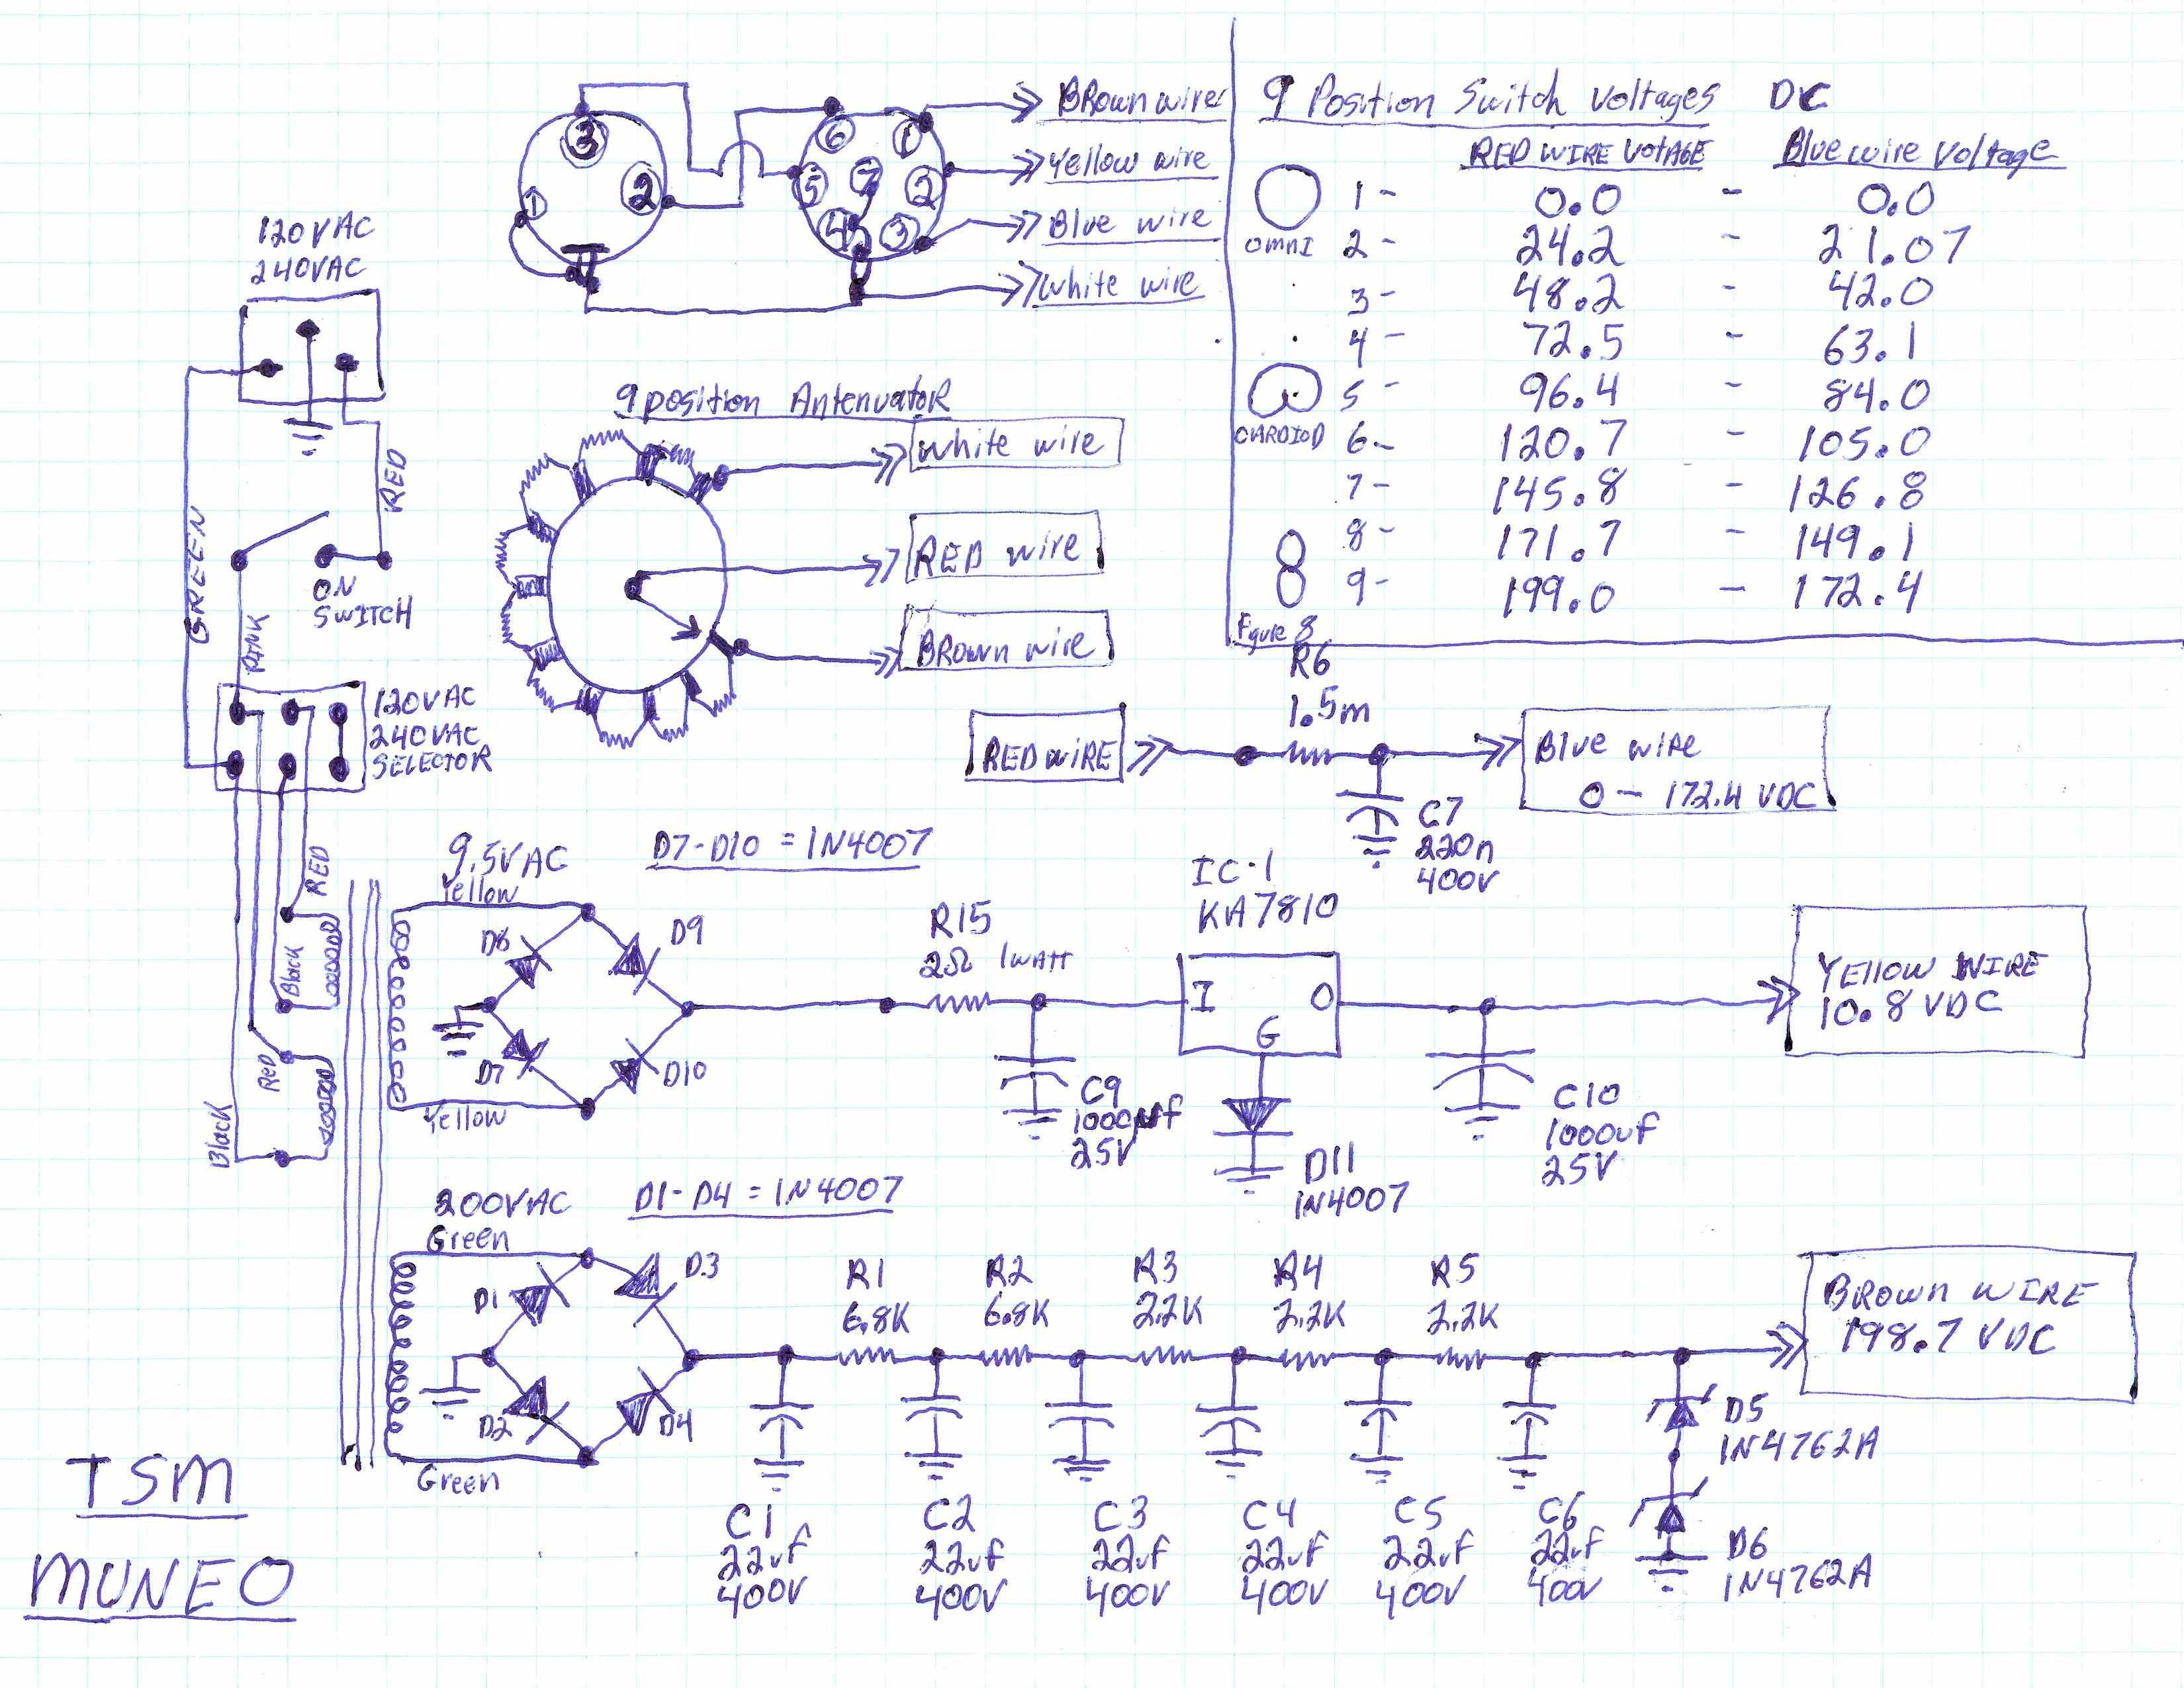 BRown wire
Yellow wire
Blue wire
White wire
3
2
1
6
1
5
7
2
4
3
9 Position Switch Voltages DC
RED WIRE VOTAGE Blue wire Voltage
1 - 0.0 - 0.0
OMNI 2 - 24.2 - 21.07
3 - 48.2 - 42.0
4 - 72.5 - 63.1
5 - 96.4 - 84.0
CARDIOD 6 - 120.7 - 105.0
7 - 145.8 - 126.8
8 - 171.7 - 149.1
9 - 199.0 - 172.4
Figure 8
120VAC
240VAC
GREEN
RED
ON
SWITCH
PINK
120VAC
240VAC
SELECTOR
9 position Antenuator
White wire
RED wire
BRown wire
R6
1.5m
RED WIRE
Blue WIRE
0 - 172.4 VDC
C7
220n
400v
RED
Black
Red
Black
9.5VAC
Yellow
D7-D10 = 1N4007
D8
D9
D7
D10
Yellow
R15
2Ω 1WATT
C9
1000uf
25V
IC-1
KA7810
I
O
G
D11
1N4007
C10
1000uF
25V
YEllow WIRE
10.8 VDC
200VAC
Green
D1-D4 = 1N4007
D1
D3
D2
D4
Green
R1
6.8K
R2
6.8K
R3
2.2K
R4
2.2K
R5
2.2K
BROWN WIRE
198.7 VDC
D5
1N4762A
D6
1N4762A
C1
22uf
400V
C2
22uf
400V
C3
22uf
400V
C4
22uf
400V
C5
22uf
400V
C6
22uf
400V
TSM
MUNEO